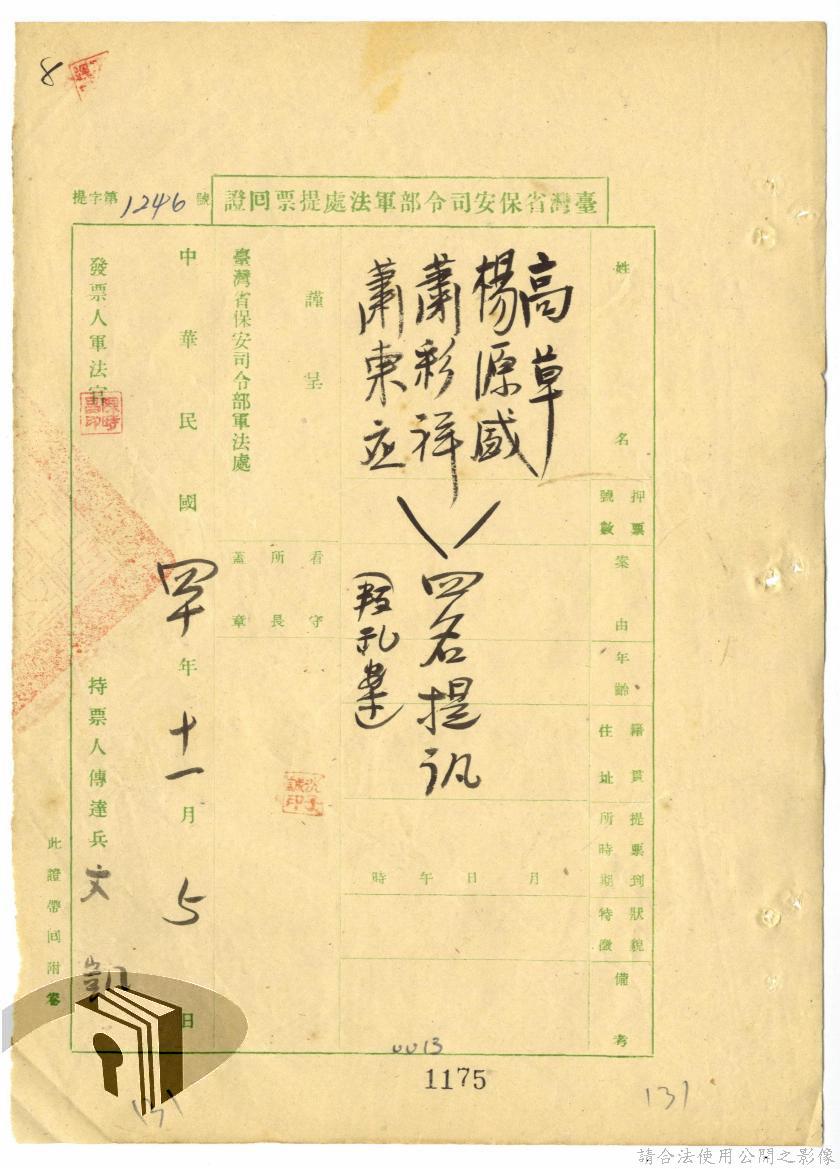 8
臺灣省保安司令部軍法處提票回證
提字第1246號
姓名
押票號數
案由
年齡
籍貫住址
提票到所時期
狀貌特徵
備考
高草
楊源盛
蕭彩祥
蕭東应
四名提訊
月日午時
謹呈
臺灣省保安司令部軍法處
看守所長蓋章
中華民國四十年十一月5日
發票人軍法官
持票人傳達兵文凱
此證帶回附卷
0013
1175
131
131
請合法使用公開之影像